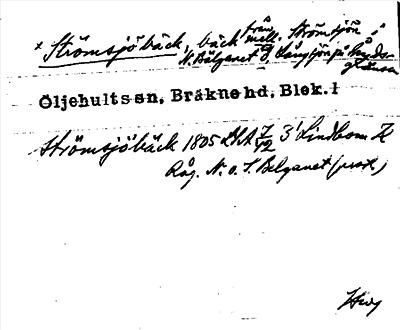 × Strömsjöbäck, bäck från mell. Strömsjön i
N. Bälganet o. Långsjön på
Öljehults sn, Bräkne hd, Blek. l
Strömsjöbäck 1805 LSA 7/12 3 Lindbom K
Råg. N. o. S. Belganet (prot.)